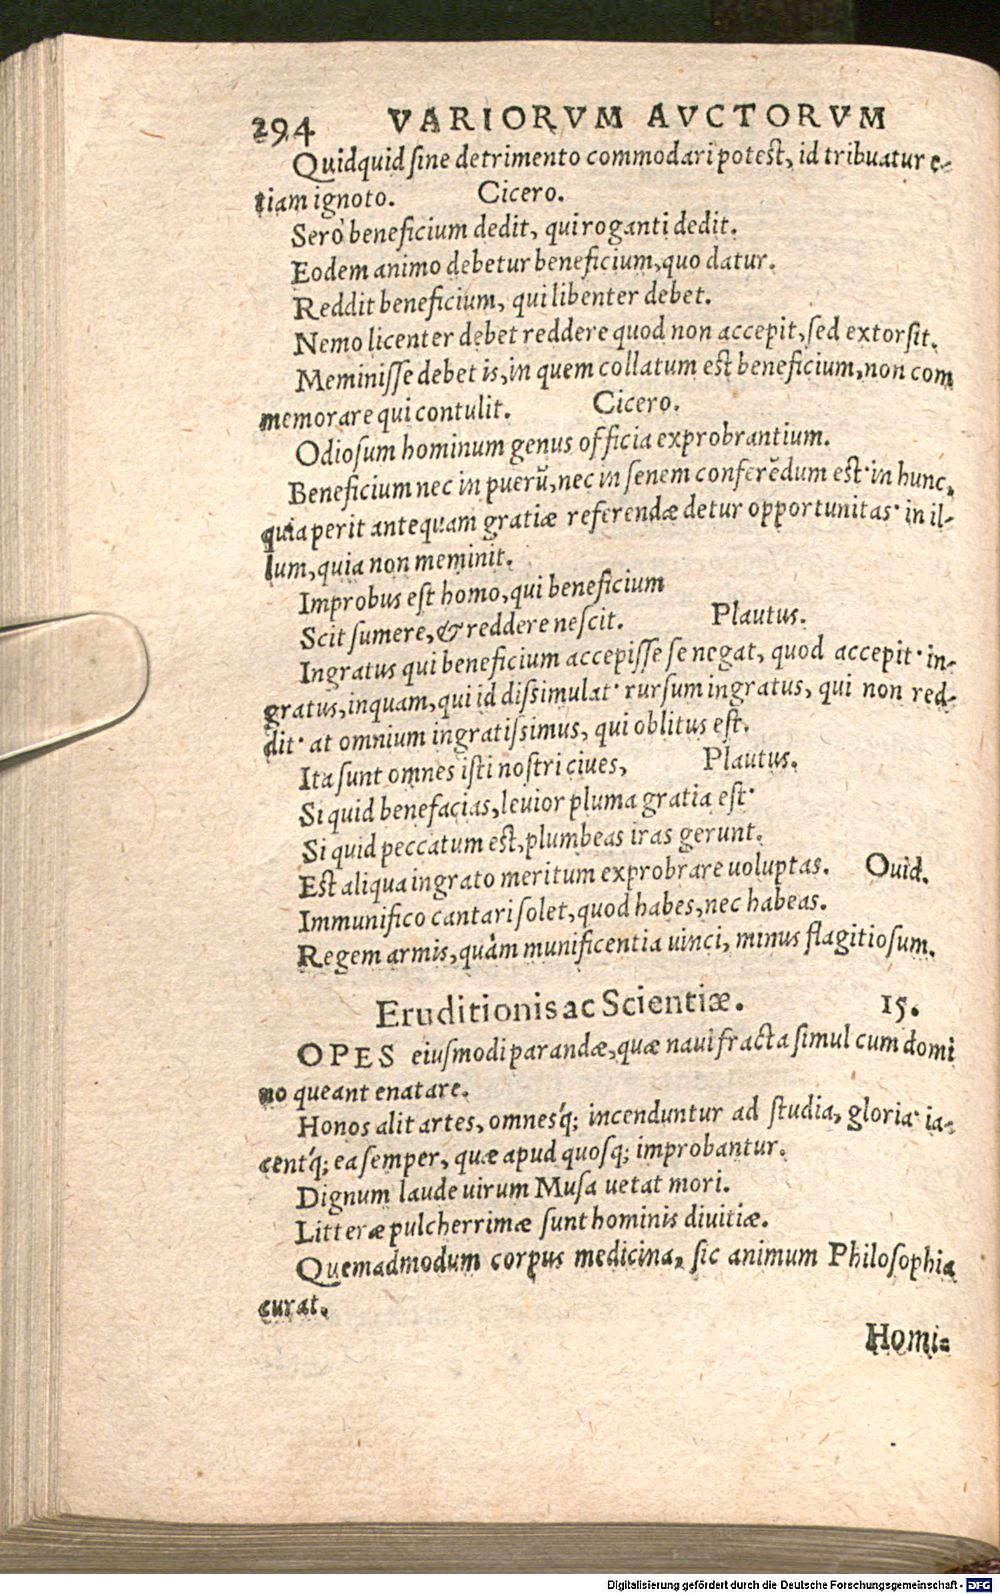 294 VARIORVM AVCTORVM
Quidquid ſine detrimento commodari poteſt, id tribuatur e-
tiam ignoto. Cicero.
Serò beneficium dedit, qui roganti dedit.
Eodem animo debetur beneficium, quo datur.
Reddit beneficium, qui libenter debet.
Nemo licenter debet reddere quod non accepit, ſed extorſit.
Meminiſſe debet is, in quem collatum eſt beneficium, non com
memorare qui contulit. Cicero.
Odioſum hominum genus officia exprobrantium.
Beneficium nec in puerū, nec in ſenem conferēdum eſt· in hunc,
quia perit antequam gratiæ referendæ detur opportunitas· in il-
lum, quia non meminit.
Improbus eſt homo, qui beneficium
Scit ſumere, & reddere neſcit. Plautus.
Ingratus qui beneficium accepiſſe ſe negat, quod accepit· in-
gratus, inquam, qui id diſsimulat· rurſum ingratus, qui non red-
dit· at omnium ingratiſsimus, qui oblitus eſt.
Ita ſunt omnes iſti noſtri ciues, Plautus.
Si quid benefacias, leuior pluma gratia eſt·
Si quid peccatum eſt, plumbeas iras gerunt.
Eſt aliqua ingrato meritum exprobrare uoluptas. Ouid.
Immunifico cantari ſolet, quod habes, nec habeas.
Regem armis, quàm munificentia uinci, minus flagitioſum.
Eruditionis ac Scientiæ. 15.
OPES eiuſmodi parandæ, quæ naui fracta ſimul cum domi
no queant enatare.
Honos alit artes, omnesq́; incenduntur ad ſtudia, gloria· ia-
centq́; ea ſemper, quæ apud quoſq; improbantur.
Dignum laude uirum Muſa uetat mori.
Litteræ pulcherrimæ ſunt hominis diuitiæ.
Quemadmodum corpus medicina, ſic animum Philoſophia
curat.
Homi-
Digitalisierung gefördert durch die Deutsche Forschungsgemeinschaft - DFG